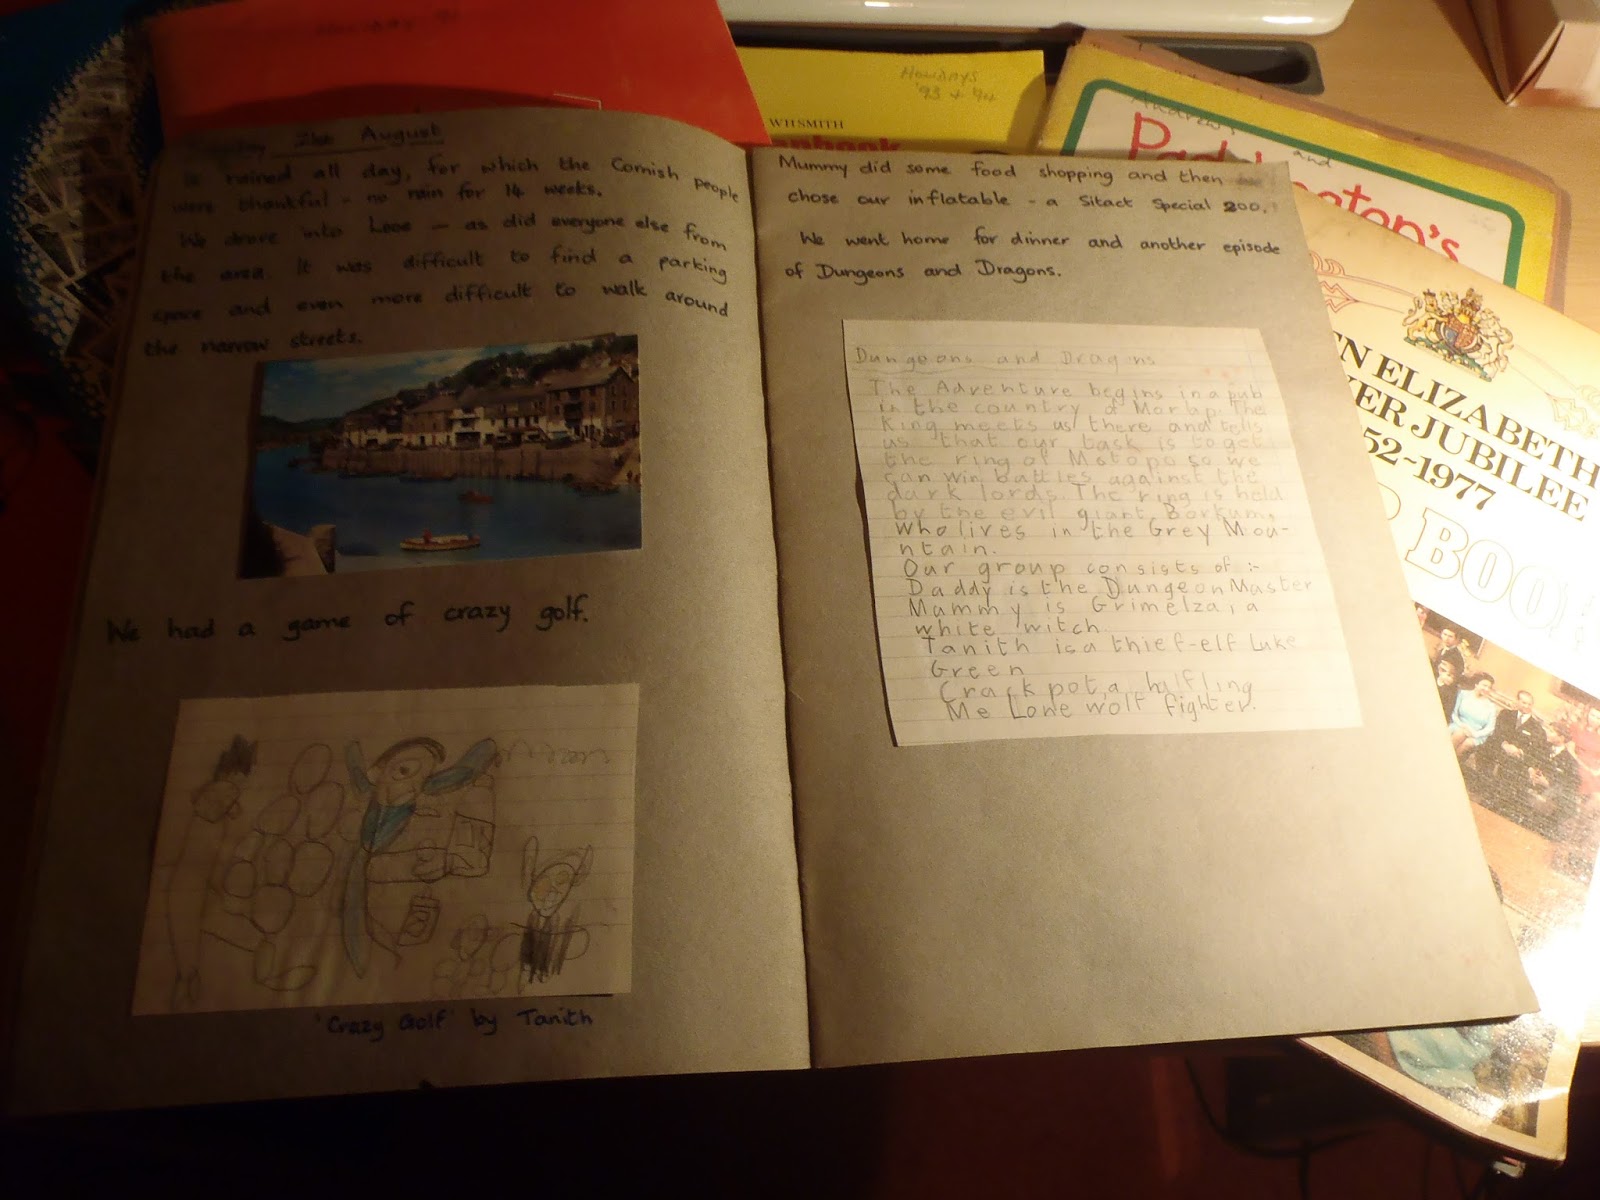 August
rained all day, for which the Cornish people
were thankful - no rain for 14 weeks.
We drove into Looe - as did everyone else from
the area. It was difficult to find a parking
space and even more difficult to walk around
the narrow streets.
We had a game of crazy golf.
'Crazy Golf' by Tanith
Mummy did some food shopping and then
chose our inflatable - a Sitact Special 200.
We went home for dinner and another episode
of Dungeons and Dragons.
Dungeons and Dragons
The Adventure begins in a pub
in the country of Morap. The
King meets us there and tells
us that our task is to get
the ring of Motopo so we
can win battles against the
dark lords. The ring is held
by the evil giant, Borkum,
who lives in the Grey Mou-
ntain.
Our group consists of :-
Daddy is the Dungeon Master
Mammy is Grimelza, a
white witch
Tanith is a thief-elf Luke
Green
Crackpot, a halfling
Me Lone wolf fighter.
Holidays
'93 + '94
WHSMITH
Andrew's
and
EN ELIZABETH
VER JUBILEE
52-1977
BOO